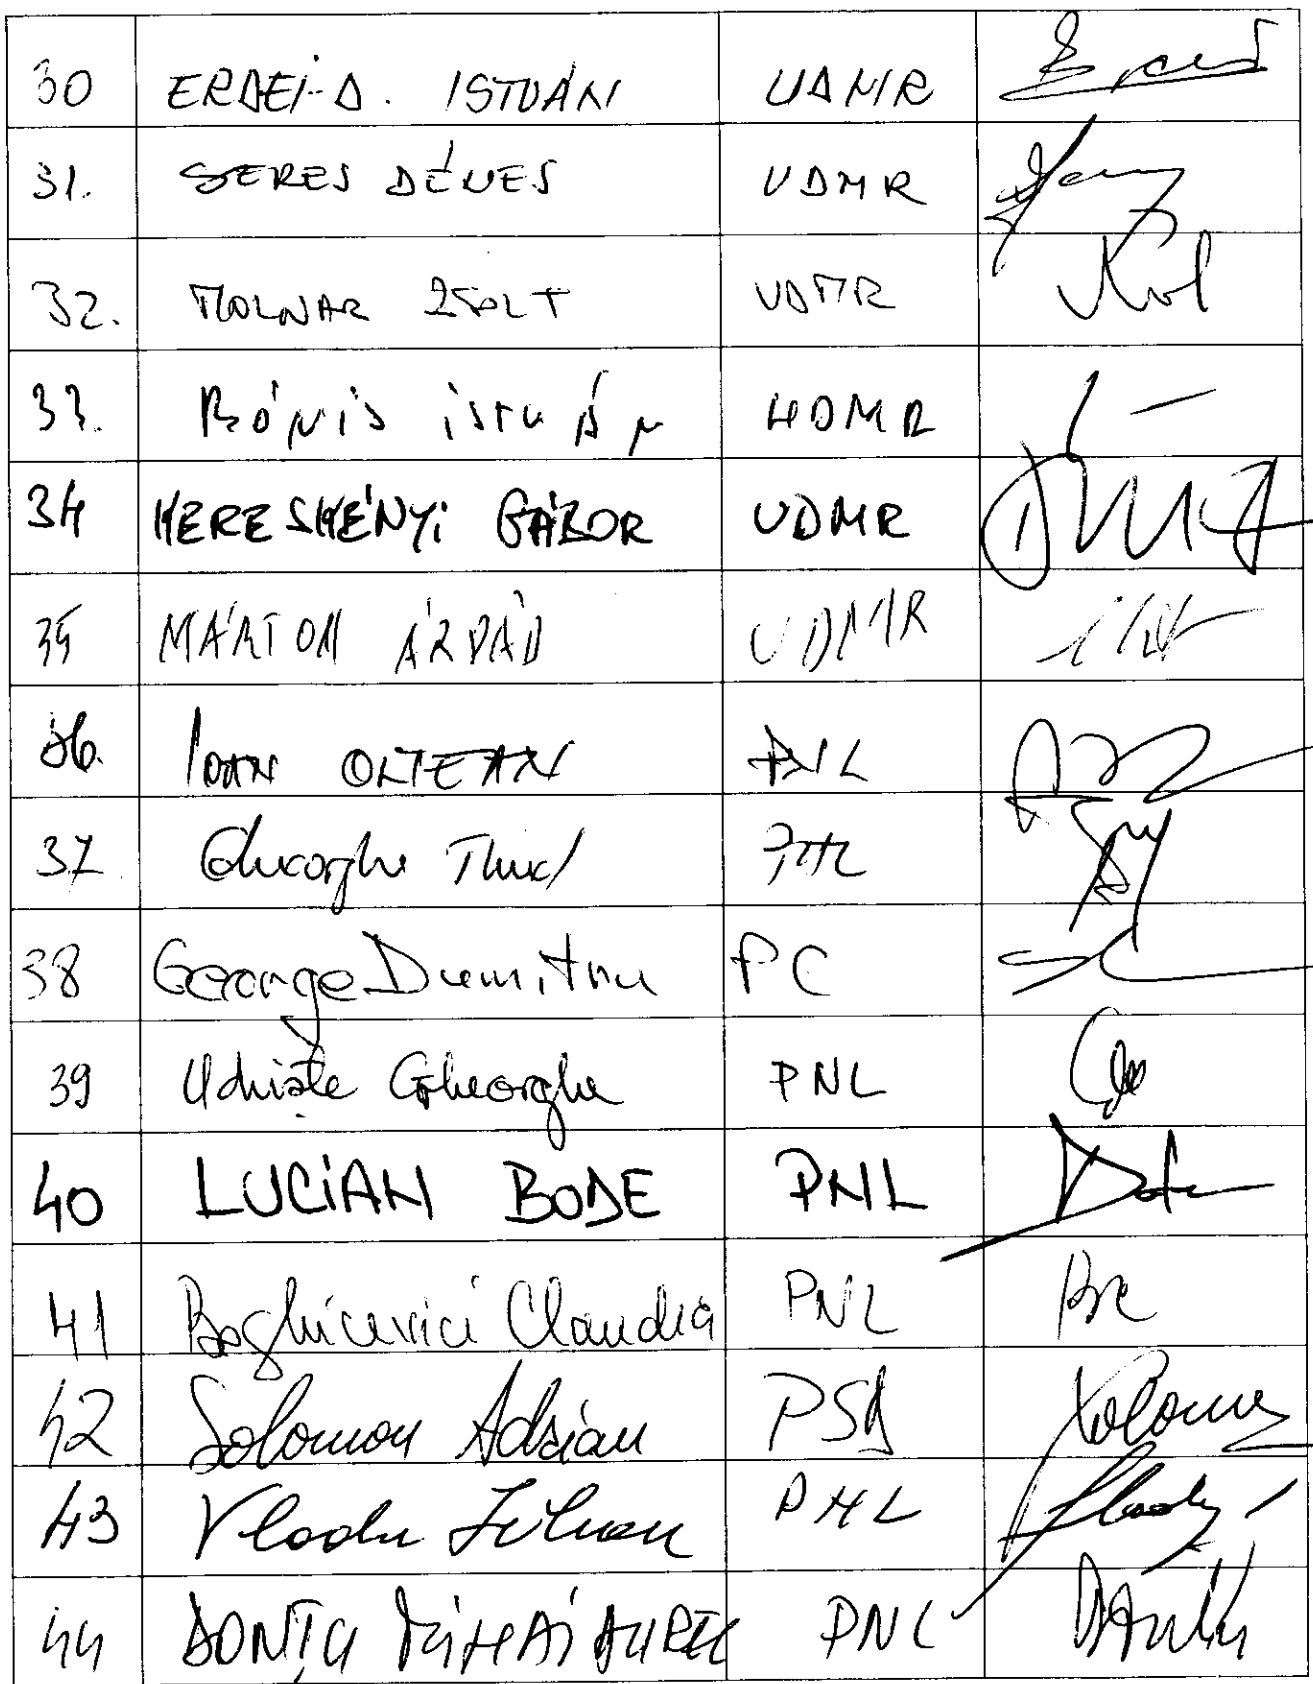 30 ERDEI-D. ISTVÁN UDMR
31. SERES DÉNES UDMR
32. MOLNAR ZSOLT UDMR
33. BÓNIS ISTVÁN UDMR
34 KERESKÉNYI GÁBOR UDMR
35 MÁRTON ÁRPÁD UDMR
36. IOAN OLTEAN PNL
37 Gheorghe PNL
38 George Dumitru PC
39 Udriște Gheorghe PNL
40 LUCIAN BODE PNL
41 Boghicevici Claudia PNL
42 Solomon Adrian PSD
43 Vladu Iulian PNL
44 DONȚU MIHAI AUREL PNL